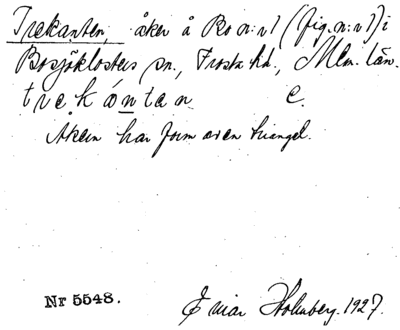 Trekanten, åker å Bo n:r 1 (fig. n:r 1) i
Bosjöklosters sn., Frosta hd., Mlm. län.
trekántan. e.
Åkern har form av en triangel.
Nr 5548.
Ejnar Holmberg. 1927.